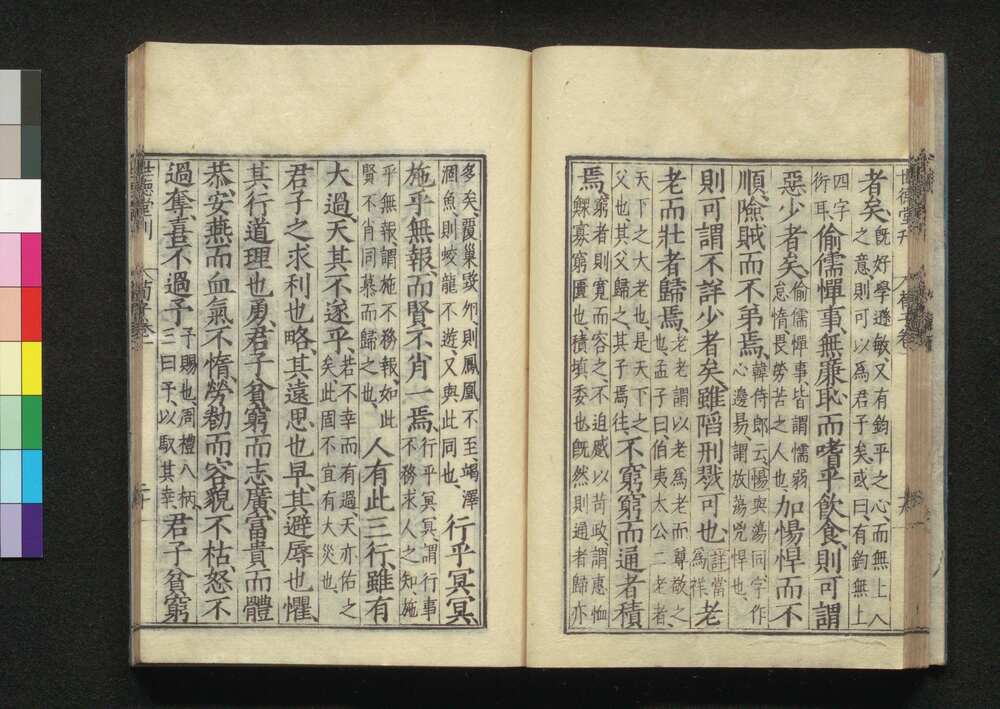 世德堂刊
荀子卷
者矣、既好學遜敏、又有鈞平之心、而無上人
之意則可以為君子矣或曰有鈞無上
四字
衍耳、
偷儒憚事、無廉恥而嗜乎飲食、則可謂
惡少者矣、
偷儒憚事、皆謂懦弱
怠惰、畏勞苦之人也、
加愓悍而不
順、險賊而不弟焉、
韓侍郎云、愓與蕩同、字作
心邊易、謂放蕩兇悍也、
則可謂不詳少者矣、雖陷刑戮可也、
詳當
為祥、
老
老而壯者歸焉、
老老謂以老為老而尊敬之
也、孟子曰伯夷太公二老者、
天下之大老也、是天下之
父也、其父歸之、其子焉往、
不窮窮而通者積
焉、
窮者則寬而容之、不迫蹙以苛政、謂惠恤
鰥寡窮匱也、積填委也、既然則通者歸亦
多矣、覆巢毀卵則鳳凰不至、竭澤
涸魚、則蛟龍不遊、又與此同也、
行乎冥冥、
施乎無報、而賢不肖一焉、
行乎冥冥、謂行事
不務求人之知、施
乎無報、謂施不務報、如此
賢不肖同慕而歸之也、
人有此三行、雖有
大過、天其不遂乎、
若不幸而有過、天亦佑之
矣、此固不宜有大災也、
君子之求利也略、其遠思也早、其避辱也懼、
其行道理也勇、君子貧窮而志廣、富貴而體
恭、安燕而血氣不惰、勞勌而容貌不枯、怒不
過奪、喜不過予、
予賜也、周禮八柄、
三曰予、以馭其幸、
君子貧窮
世德堂刊
荀子卷一
二十